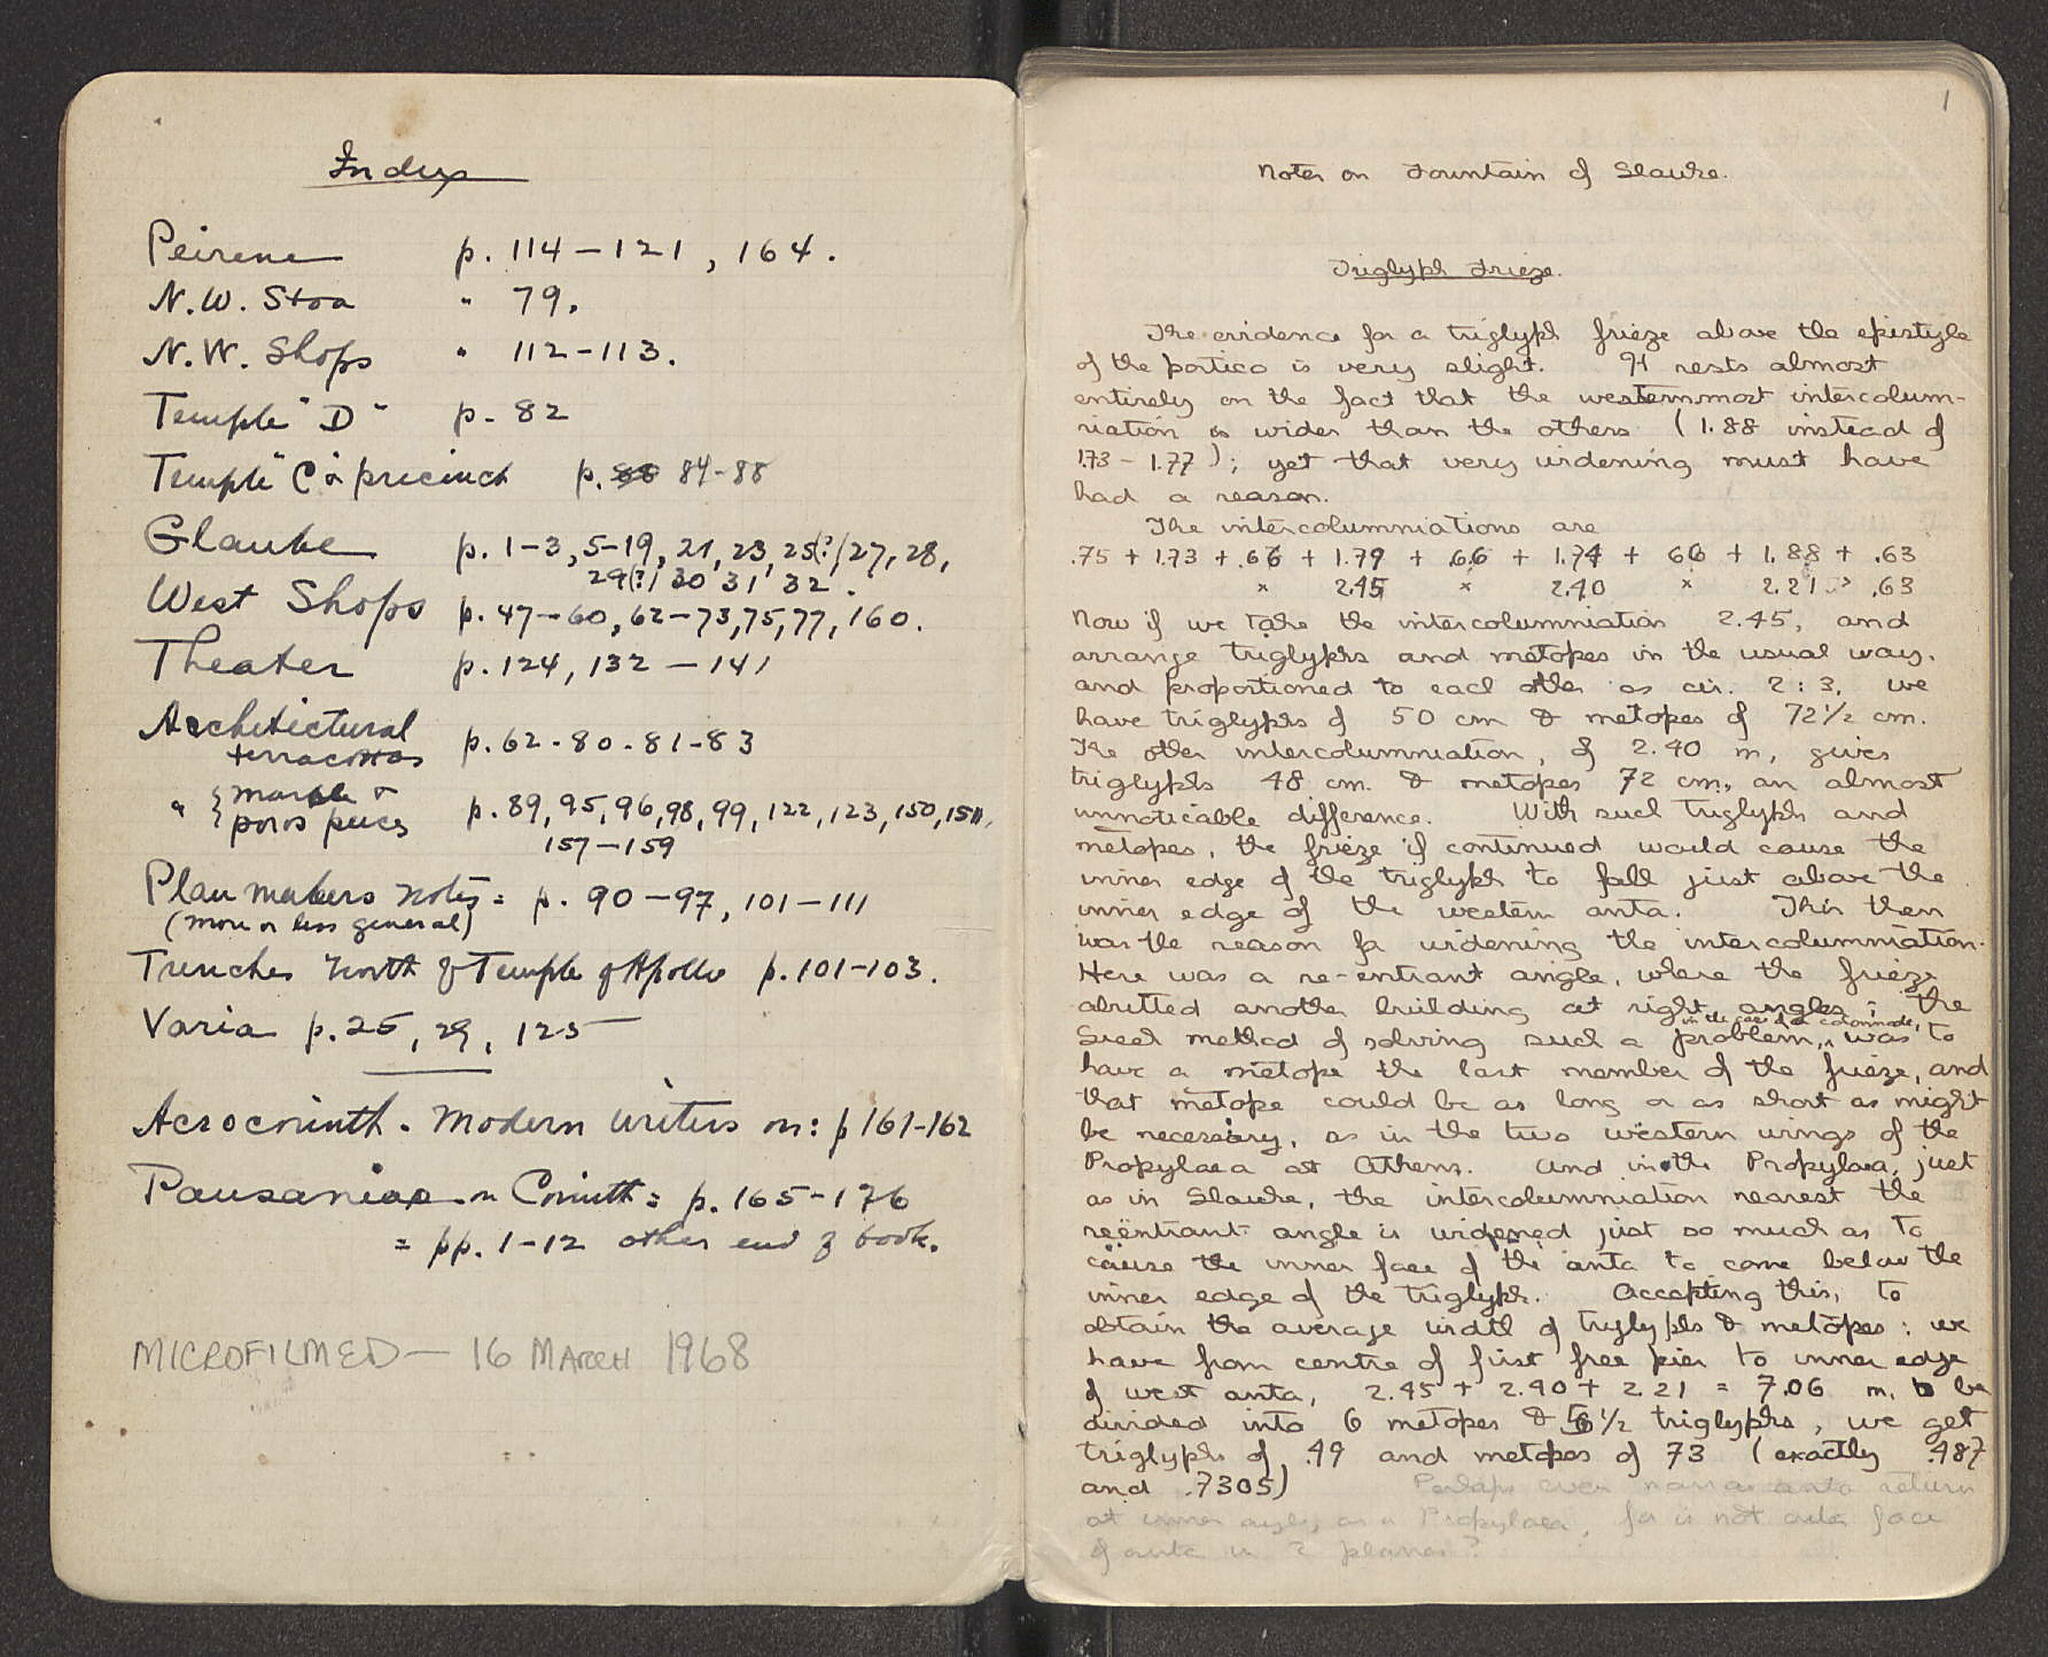 Index
Peirene p. 114 – 121, 164.
N.W. Stoa " 79.
N.W. Shops " 112–113.
Temple "D" p. 82
Temple "C" & precinct p. 84-88
Glauke p. 1–3, 5–19, 21, 23, 25(?), 27, 28,
29(?) 30 31 32.
West Shops p. 47–60, 62–73, 75, 77, 160.
Theater p. 124, 132 – 141
Architectural
terracottas p. 62-80-81-83
" { marble &
poros pieces p. 89, 95, 96, 98, 99, 122, 123, 150, 151,
157–159
Plan makers notes = p. 90–97, 101–111
(more or less general)
Trenches North of Temple of Apollo p. 101–103.
Varia p. 25, 29, 125
Acrocorinth. Modern writers on: p 161-162
Pausanias on Corinth = p. 165–176
= pp. 1–12 other end of book.
MICROFILMED – 16 MARCH 1968
1
Notes on Fountain of Glauke.
Triglyph Frieze.
The evidence for a triglyph frieze above the epistyle
of the portico is very slight. It rests almost
entirely on the fact that the westernmost intercolum-
niation is wider than the others (1.88 instead of
1.73 – 1.77); yet that very widening must have
had a reason.
The intercolumniations are
.75 + 1.73 + .66 + 1.79 + .66 + 1.74 + 66 + 1.88 + .63
x 2.45 x 2.40 x 2.21 .63
Now if we take the intercolumniation 2.45, and
arrange triglyphs and metopes in the usual way,
and proportioned to each other as cir. 2:3, we
have triglyphs of 50 cm & metopes of 72½ cm.
The other intercolumniation, of 2.40 m, gives
triglyphs 48 cm. & metopes 72 cm, an almost
unnoticable difference. With such triglyphs and
metopes, the frieze if continued would cause the
inner edge of the triglyph to fall just above the
inner edge of the western anta. This then
was the reason for widening the intercolumniation.
Here was a re-entrant angle, where the frieze
abutted another building at right angles; the
Greek method of solving such a problem, in the case of a colonnade, was to
have a metope the last member of the frieze, and
that metope could be as long or as short as might
be necessary, as in the two western wings of the
Propylaea at Athens. And in the Propylaea, just
as in Glauke, the intercolumniation nearest the
reëntrant angle is widened just so much as to
cause the inner face of the anta to come below the
inner edge of the triglyph. Accepting this, to
obtain the average width of triglyphs & metopes: we
have from centre of first free pier to inner edge
of west anta, 2.45 + 2.40 + 2.21 = 7.06 m. to be
divided into 6 metopes & 5½ triglyphs, we get
triglyphs of .49 and metopes of 73 (exactly .487
and .7305) Perhaps even narrow anta return
at inner angle, as in Propylaea, for is not outer face
of anta in 2 planes?